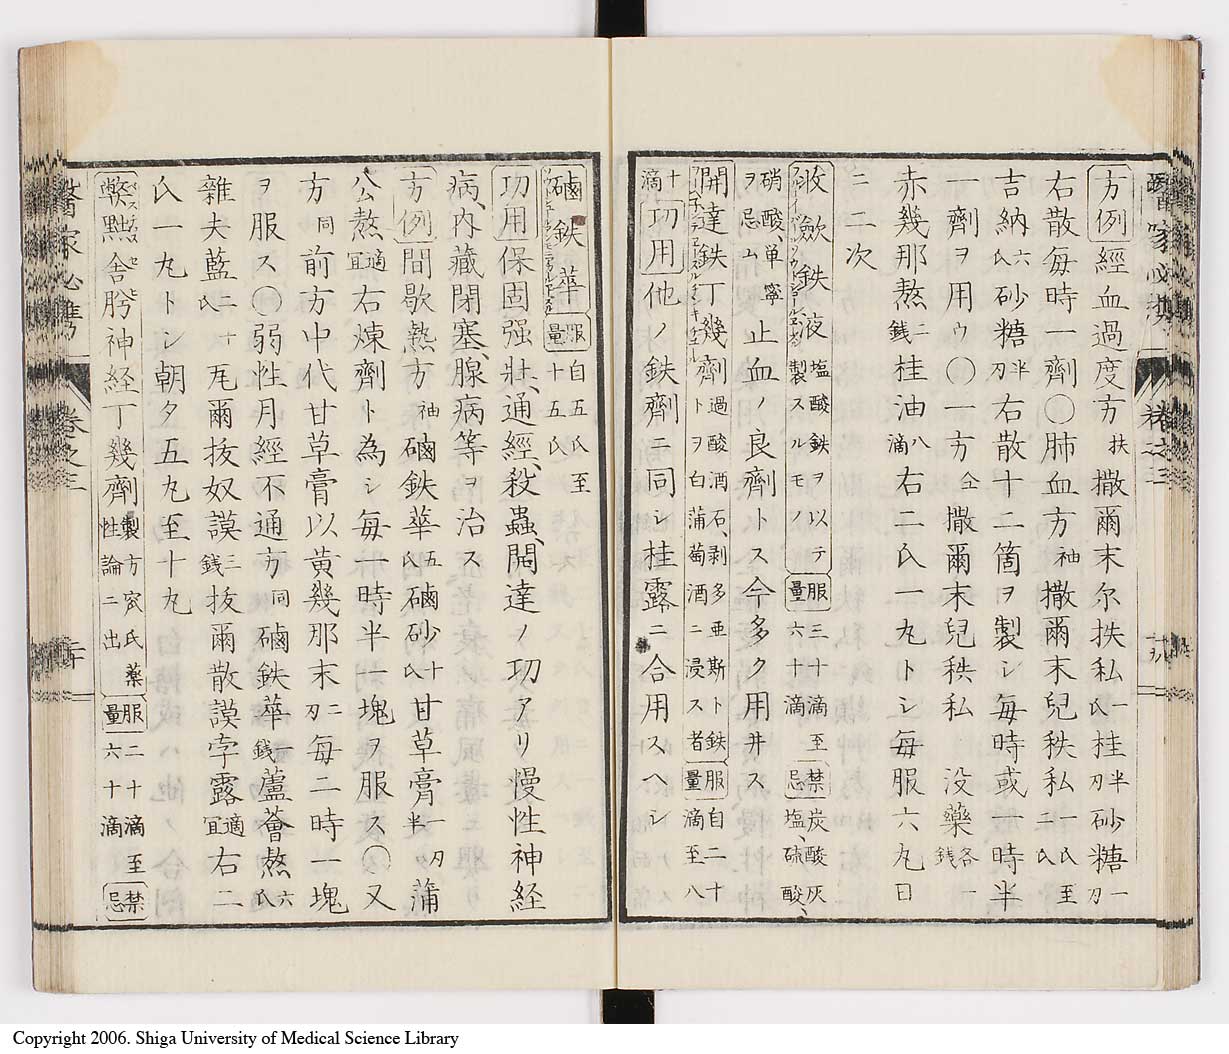 方例 経血過度方 扶 撒爾末尓扶私 一氏 桂 半刃 砂糖 一刃
右散毎時一劑〇肺血方 袖 撒爾末兒秩私 一氏至二氏
吉納 六氏 砂糖 半刃 右散十二箇ヲ製シ毎時或一時半
一劑ヲ用ウ〇一方 仝 撒爾末兒秩私 没藥 各一銭
赤幾那熬 二銭 桂油 八滴 右二氏一丸トシ毎服六丸日
二二次
收歛鉄液 塩酸鉄ヲ以テ製スルモノ 服量 三十滴至六十滴 禁忌 炭酸灰塩、硫酸、
硝酸、単寧ヲ忌ム 止血ノ良劑トス今多ク用井ス
開達鉄丁幾劑 過酸酒石、剥多亜斯ト鉄トヲ白蒲萄酒ニ浸ス者 服量 自二十滴至八
十滴 功用 他ノ鉄劑ニ同シ桂露ニ合用スヘシ
醫家必携 巻之三
磠鉄華 服量 自五氏至十五氏
功用 保固强壯、通經、殺蟲、開達ノ功アリ慢性神経
病、内藏閉塞、腺病等ヲ治ス
方例 間歇熱方 袖 磠鉄華 五氏 磠砂 十氏 甘草膏 一刃半 蒲
公熬 適宜 右煉劑ト為シ毎一時半一塊ヲ服ス〇又
方 同 前方中代甘草膏以黄幾那末 二刃 毎二時一塊
ヲ服ス〇弱性月經不通方 同 磠鉄華 一銭 蘆薈熬 六氏
雜夫藍 二十氏 瓦爾抜奴謨 三銭 抜爾散謨孛露 適宜 右二
氏一丸トシ朝夕五丸至十丸
弊點舎胯神経丁幾劑 製方宻氏薬性論ニ出 服量 二十滴至六十滴 禁忌
醫家必携 巻之三 二十
Copyright 2006. Shiga University of Medical Science Library